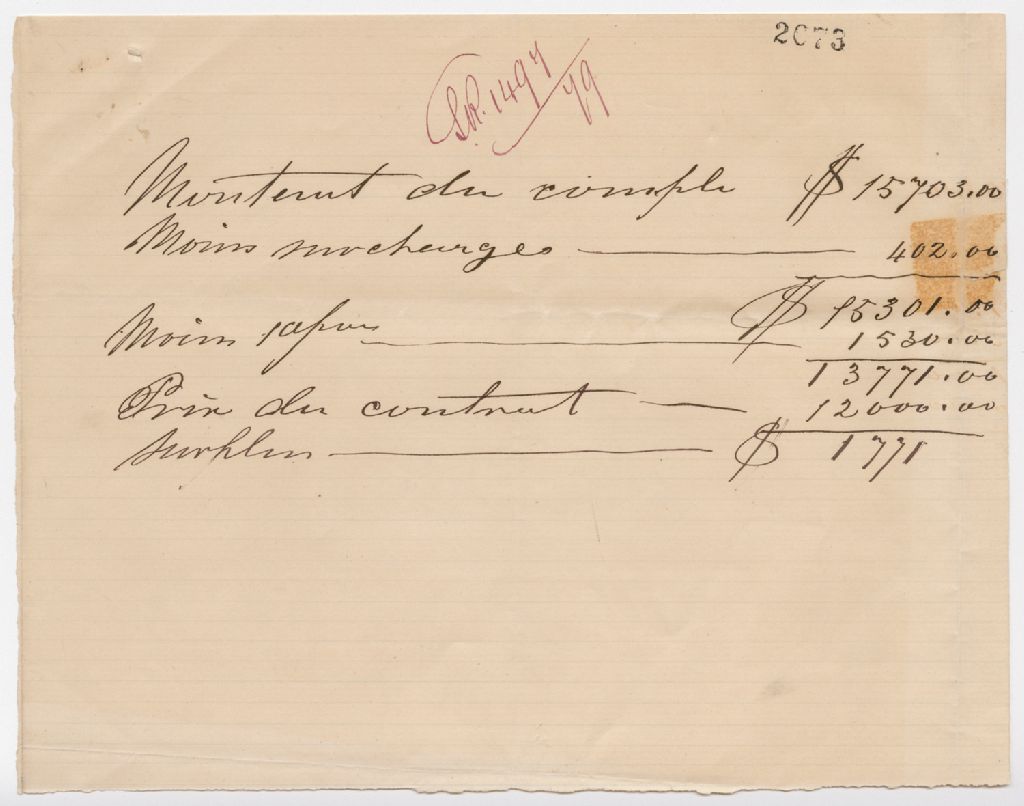 2073
S.R. 1497/99
Montant du compte $ 15703.00
Moins surcharges 402.00
$ 15301.00
Moins 1530.00
13771.00
Prix du contrat 12000.00
surplus $ 1771